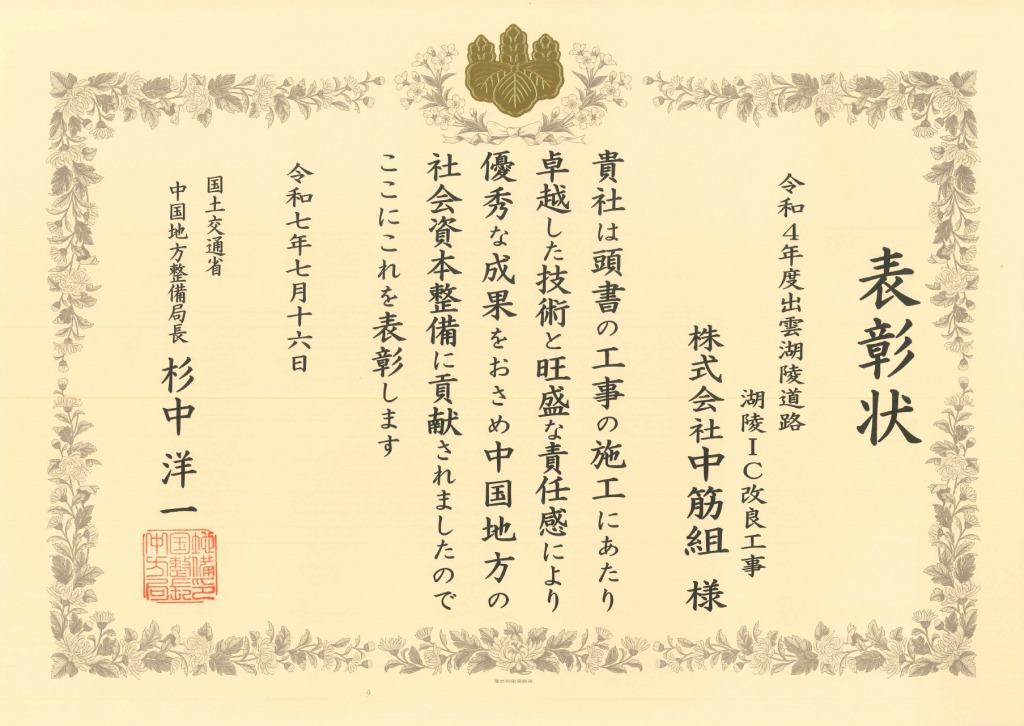 表彰状
令和4年度出雲湖陵道路
湖陵IC改良工事
株式会社中筋組 様
貴社は頭書の工事の施工にあたり
卓越した技術と旺盛な責任感により
優秀な成果をおさめ中国地方の
社会資本整備に貢献されましたので
ここにこれを表彰します
令和七年七月十六日
国土交通省
中国地方整備局長 杉中洋一